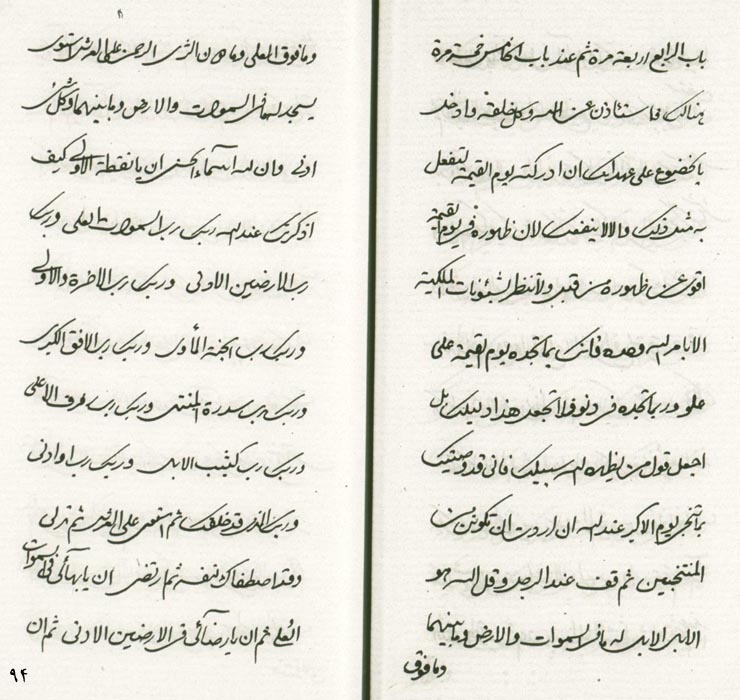 باب الرابع اربعة مرة ثم عند باب الخامس خمسة مرة
هنالك فاستاذن عن الله وكل خلقه وادخل
بالخضوع على عهد الله ان ادركته يوم القيمة لتفعل
به مثل ذلك والا لا ينفعك لان ظهوره في يوم القيمة
اقوى عن ظهوره من قبل ولا تنظر لشئونات الملكية
الا بامر الله وحده فانك بما تجده يوم القيمة على
علو وربما تجده في دنو فلا تجعل هذا دليلك بل
اجعل قول من يظهره الله سبيلك فانى قد وصيتك
يوم الاكبر عند الله ان اردت ان تكونن من
المنتجبين ثم قف عند الرجل وقل الله هو
الابهى الابهى له ما في السموات والارض وما بينهما
وما فوق
وما فوق العلى وما دون الثرى الرحمن على العرش استوى
يسجد له ما في السموات والارض وما بينهما وكل شئ
ادنى وان له اسماء الحسنى ان يا نقطة الاولى كيف
اذكرنك عند الله ربك رب السموات العلى وربك
رب الارضين الادنى وربك رب الاخرة والاولى
وربك رب الجنة المأوى وربك رب الافق الكبرى
وربك رب سدرة المنتهى وربك رب غرف الاعلى
وربك رب كثيب الابهى وربك رب او ادنى
وربك الذى قد خلقك ثم استوى على العرش ثم تدلى
وقد اصطفاك لنفسه ثم ارتضى ان يا بهائى فى السموات
العلى ثم ان يا رضائى فى الارضين الادنى ثم ان
٩۴